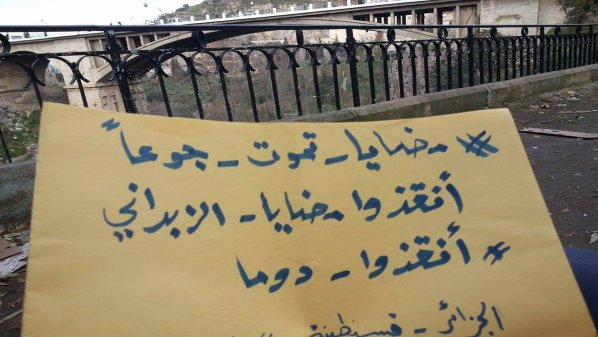 #_ضنايا_تموت_جوعاً
أنقذوا_ضنايا_الزبداني
#أنقذوا_دوما
الجزائر - قسنطينة